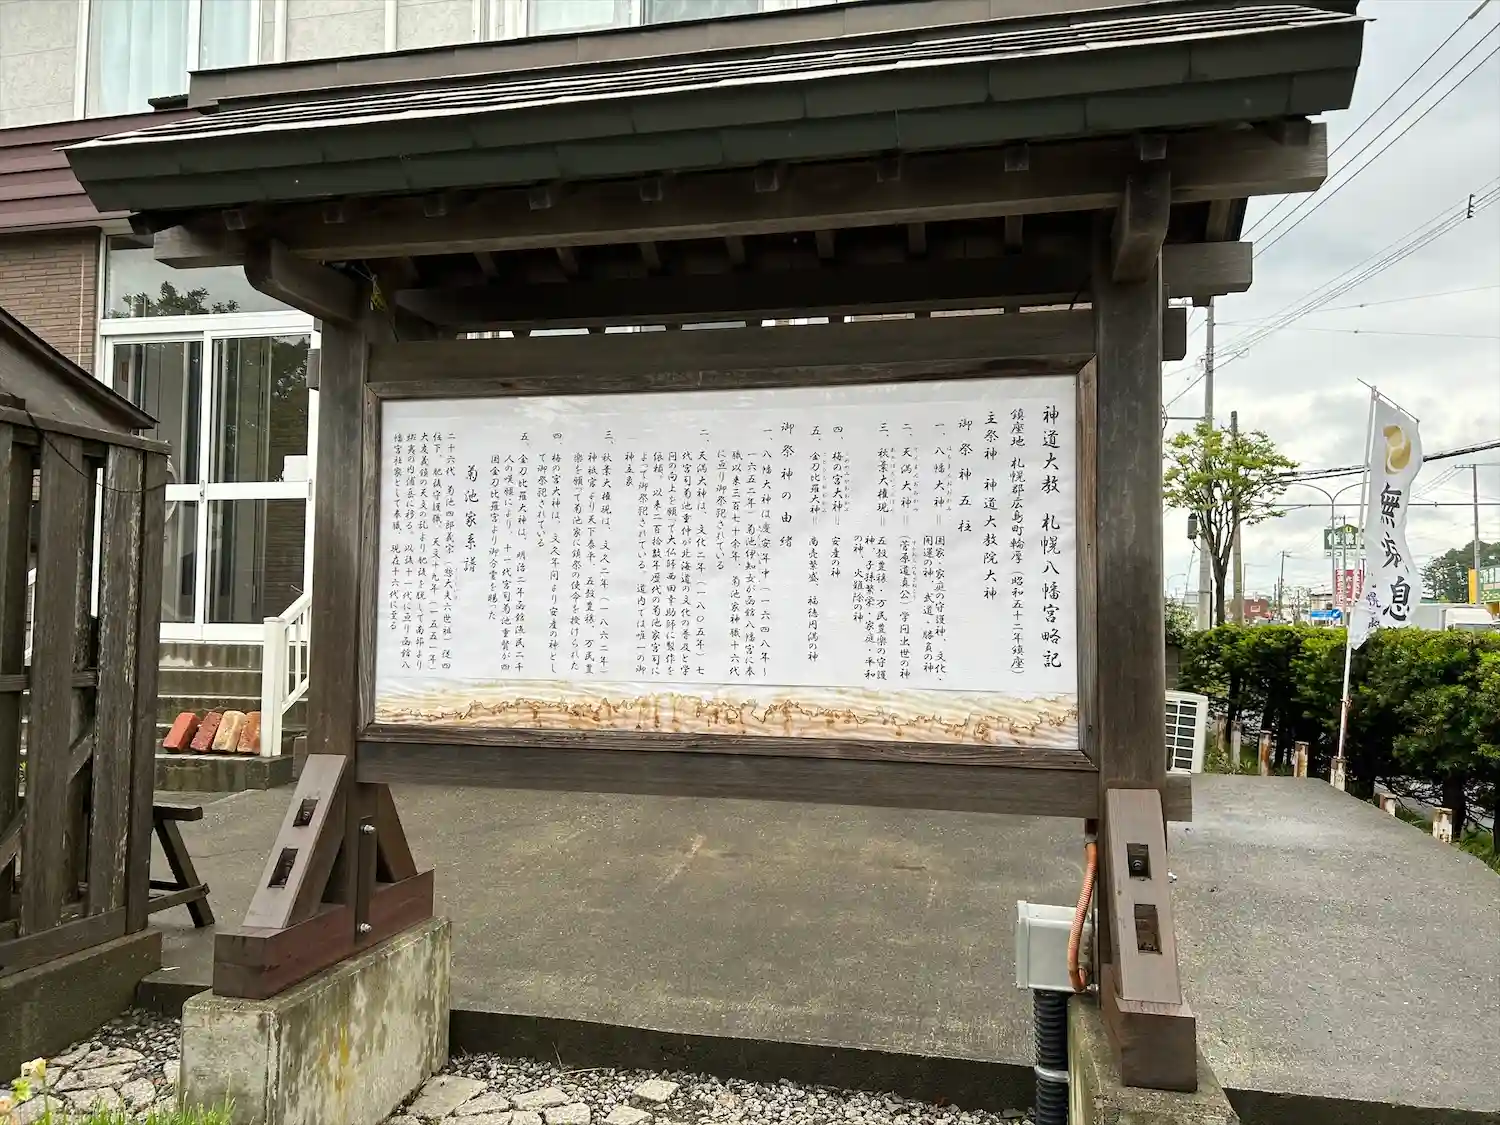 神道大教 札幌八幡宮略記
鎮座地 札幌郡広島町輪厚(昭和五十二年鎮座)
主祭神 神道大教院大神
御祭神五柱
一、八幡大神＝国家・家庭の守護神、文化・
開運の神・武道・勝負の神
二、天満大神＝(菅原道真公)学問出世の神
三、秋葉大権現＝五穀豊穣・万民豊楽の守護
神、子孫繁栄・家庭・平和
の神、火難除の神
四、梅の宮大神＝安産の神
五、金刀比羅大神＝商売繁盛、福徳円満の神
御祭神の由緒
一、八幡大神は慶安年中(一六四八年～
一六五二年)菊池伊知女が函館八幡宮に奉
職以来三百七十余年、菊池家神職十六代
に亘り御祭祀されている
二、天満大神は、文化二年(一八〇五年)、七
代宮司菊池重仲が北海道の文化の普及と学
問の向上を願って大仏師西田幸助師に製作を
依頼。以来二百拾数年歴代の菊池家宮司に
よって御祭祀されている。道内では唯一の御
神玉象
三、秋葉大権現は、文久二年(一八六二年)
神祇宮より天下泰平、五穀豊穣、万民豊
楽を願って菊池家に鎮祭の使命を授けられた
四、梅の宮大神は、文久年間より安産の神とし
て御祭祀されている
五、金刀比羅大神は、明治二年函館漁民二千
人の嘆願により、十一代宮司菊池重賢が四
国金刀比羅宮より御分霊を賜った
菊池家系譜
二十六代 菊池四郎義宗(惣大夫六世祖)従四
位下、肥後守護職、天文十九年(一五五一年)
大友義鎮の天文の乱より肥後を脱して南部より
蝦夷の内浦岳に移る。以後十一代に亘り函館八
幡宮社家として奉職、現在十六代に至る
無病息